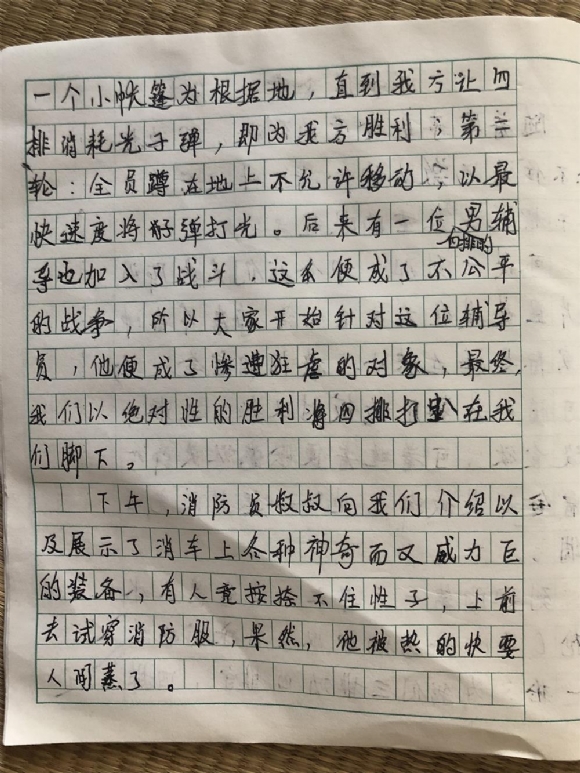 一个小帐篷为根据地，直到我方让四
排消耗光子弹，即为我方胜利；第二
轮：全员蹲在地上不允许移动，以最
快速度将子弹打光。后来有一位四排的男辅
导也加入了战斗，这么便成了不公平
的战争，所以大家开始针对这位辅导
员，他便成了惨遭狂虐的对象，最终，
我们以绝对性的胜利将四排打趴在我
们脚下。
下午，消防员叔叔向我们介绍以
及展示了消车上各种神奇而又威力巨
的装备，有人竟按捺不住性子，上前
去试穿消防服，果然，他被热的快要
人间蒸了。